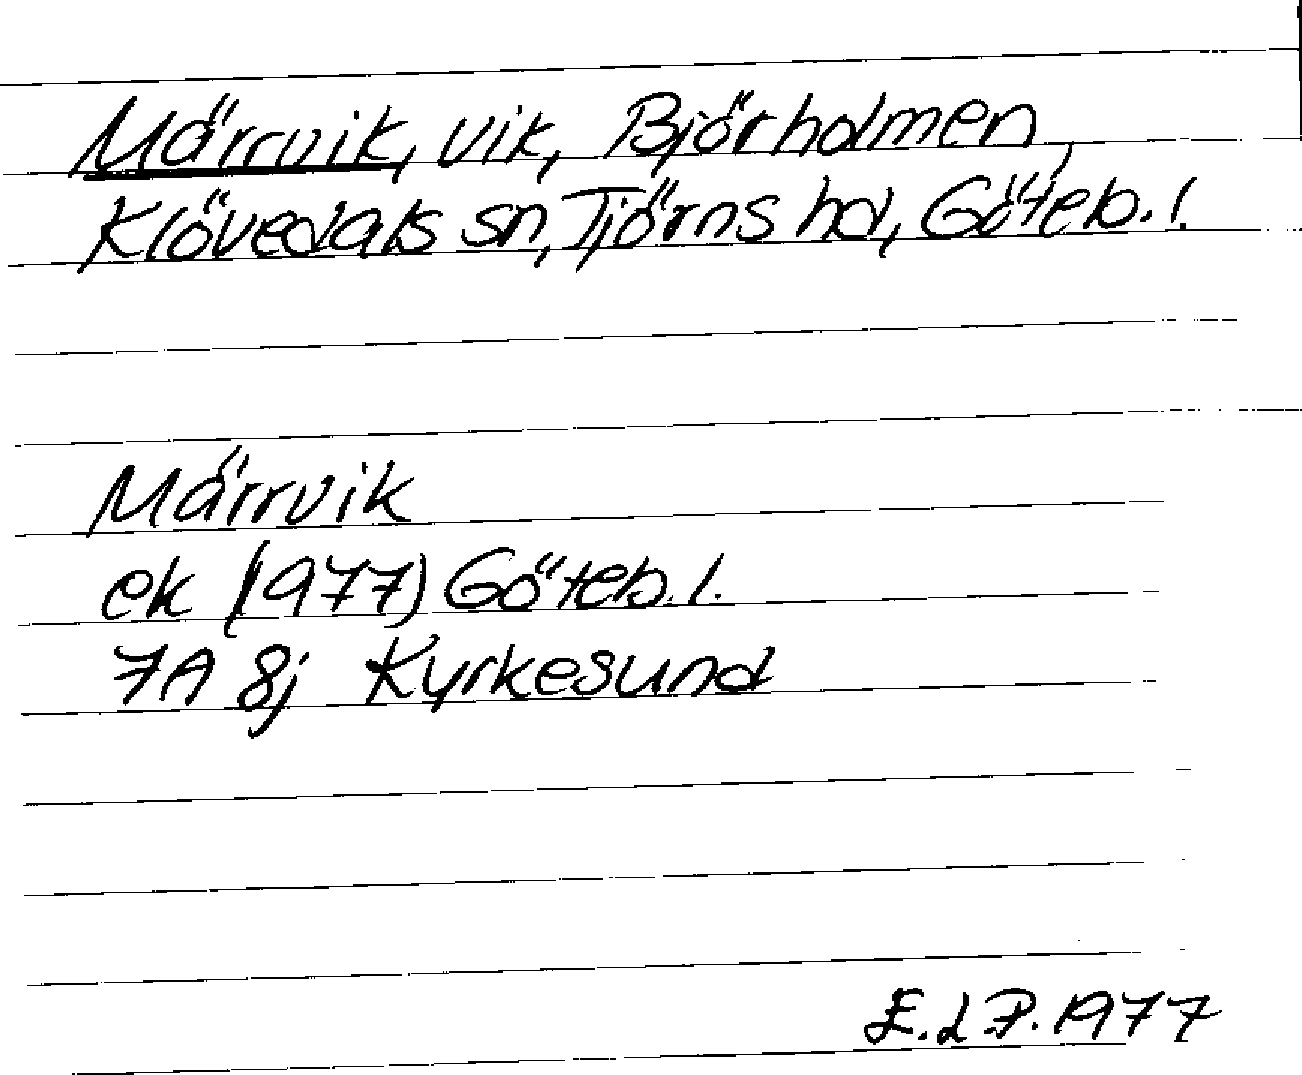 Märrvik, vik, Björholmen,
Klövedals sn, Tjörns hd, Göteb. l.
Märrvik
ek (1977) Göteb. l.
7A 8j Kyrkesund
E. d P. 1977